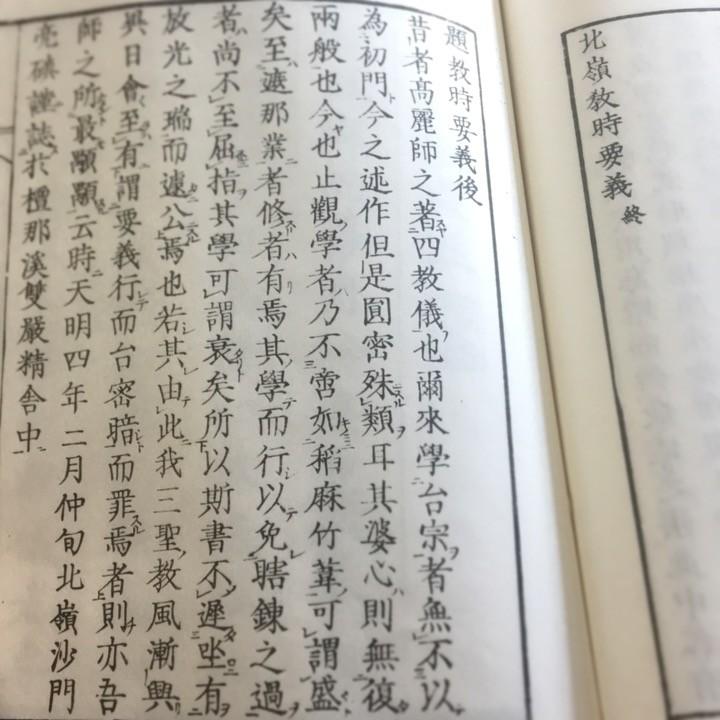 北嶺教時要義終
題教時要義後
昔者高麗師之著四教儀也爾來學台宗者無不以
為初門今之述作但是圓密殊類耳其婆心則無復
兩般也今也止觀學者乃不啻如稻麻竹葦可謂盛
矣至遮那業者修者有焉其學而行以免瞎鍊之過
者尚不至屈指其學可謂衰矣所以斯書不遲坐有
放光之瑞而遠公焉也若其由此我三聖教風漸興
與日會至有謂要義行而台密暗而罪焉者則亦吾
師之所最顒顒云時天明四年二月仲旬北嶺沙門
亮磧謹誌於檀那溪雙嚴精舎中